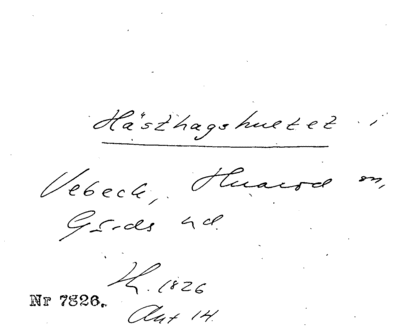 Hästhagshuset i
Vebeck, Huarod sn,
Gärds hd.
Th. 1826
Akt 14.
Nr 7826.